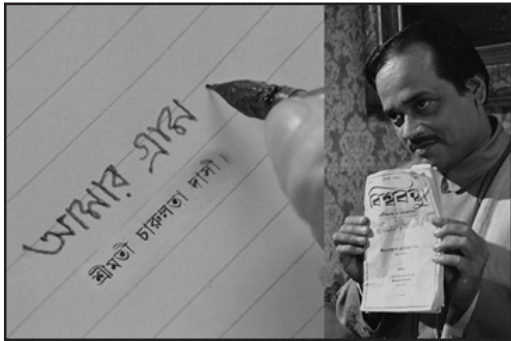 আমার গ্রাম
শ্রীমতী চারুলতা দাসী।
বিশ্ববন্ধু